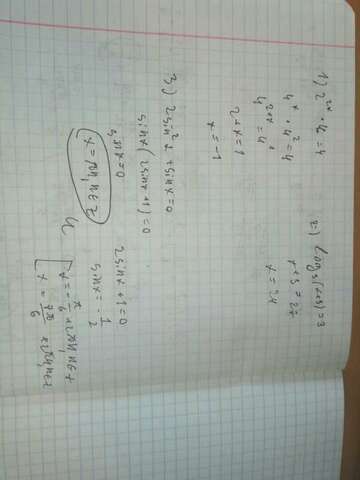 1) 2²ˣ · 4 = 4
4ˣ · 4² = 4
4²⁺ˣ = 4¹
2+x = 1
x = -1
2) log₃(x+3) = 3
x+3 = 27
x = 24
3) 2sin²x + sinx = 0
sinx(2sinx+1) = 0
sinx = 0
x = πn, n∈z
и
2sinx+1 = 0
sinx = -1/2
x = -π/6 + 2πn, n∈z
x = 7π/6 + 2πn, n∈z